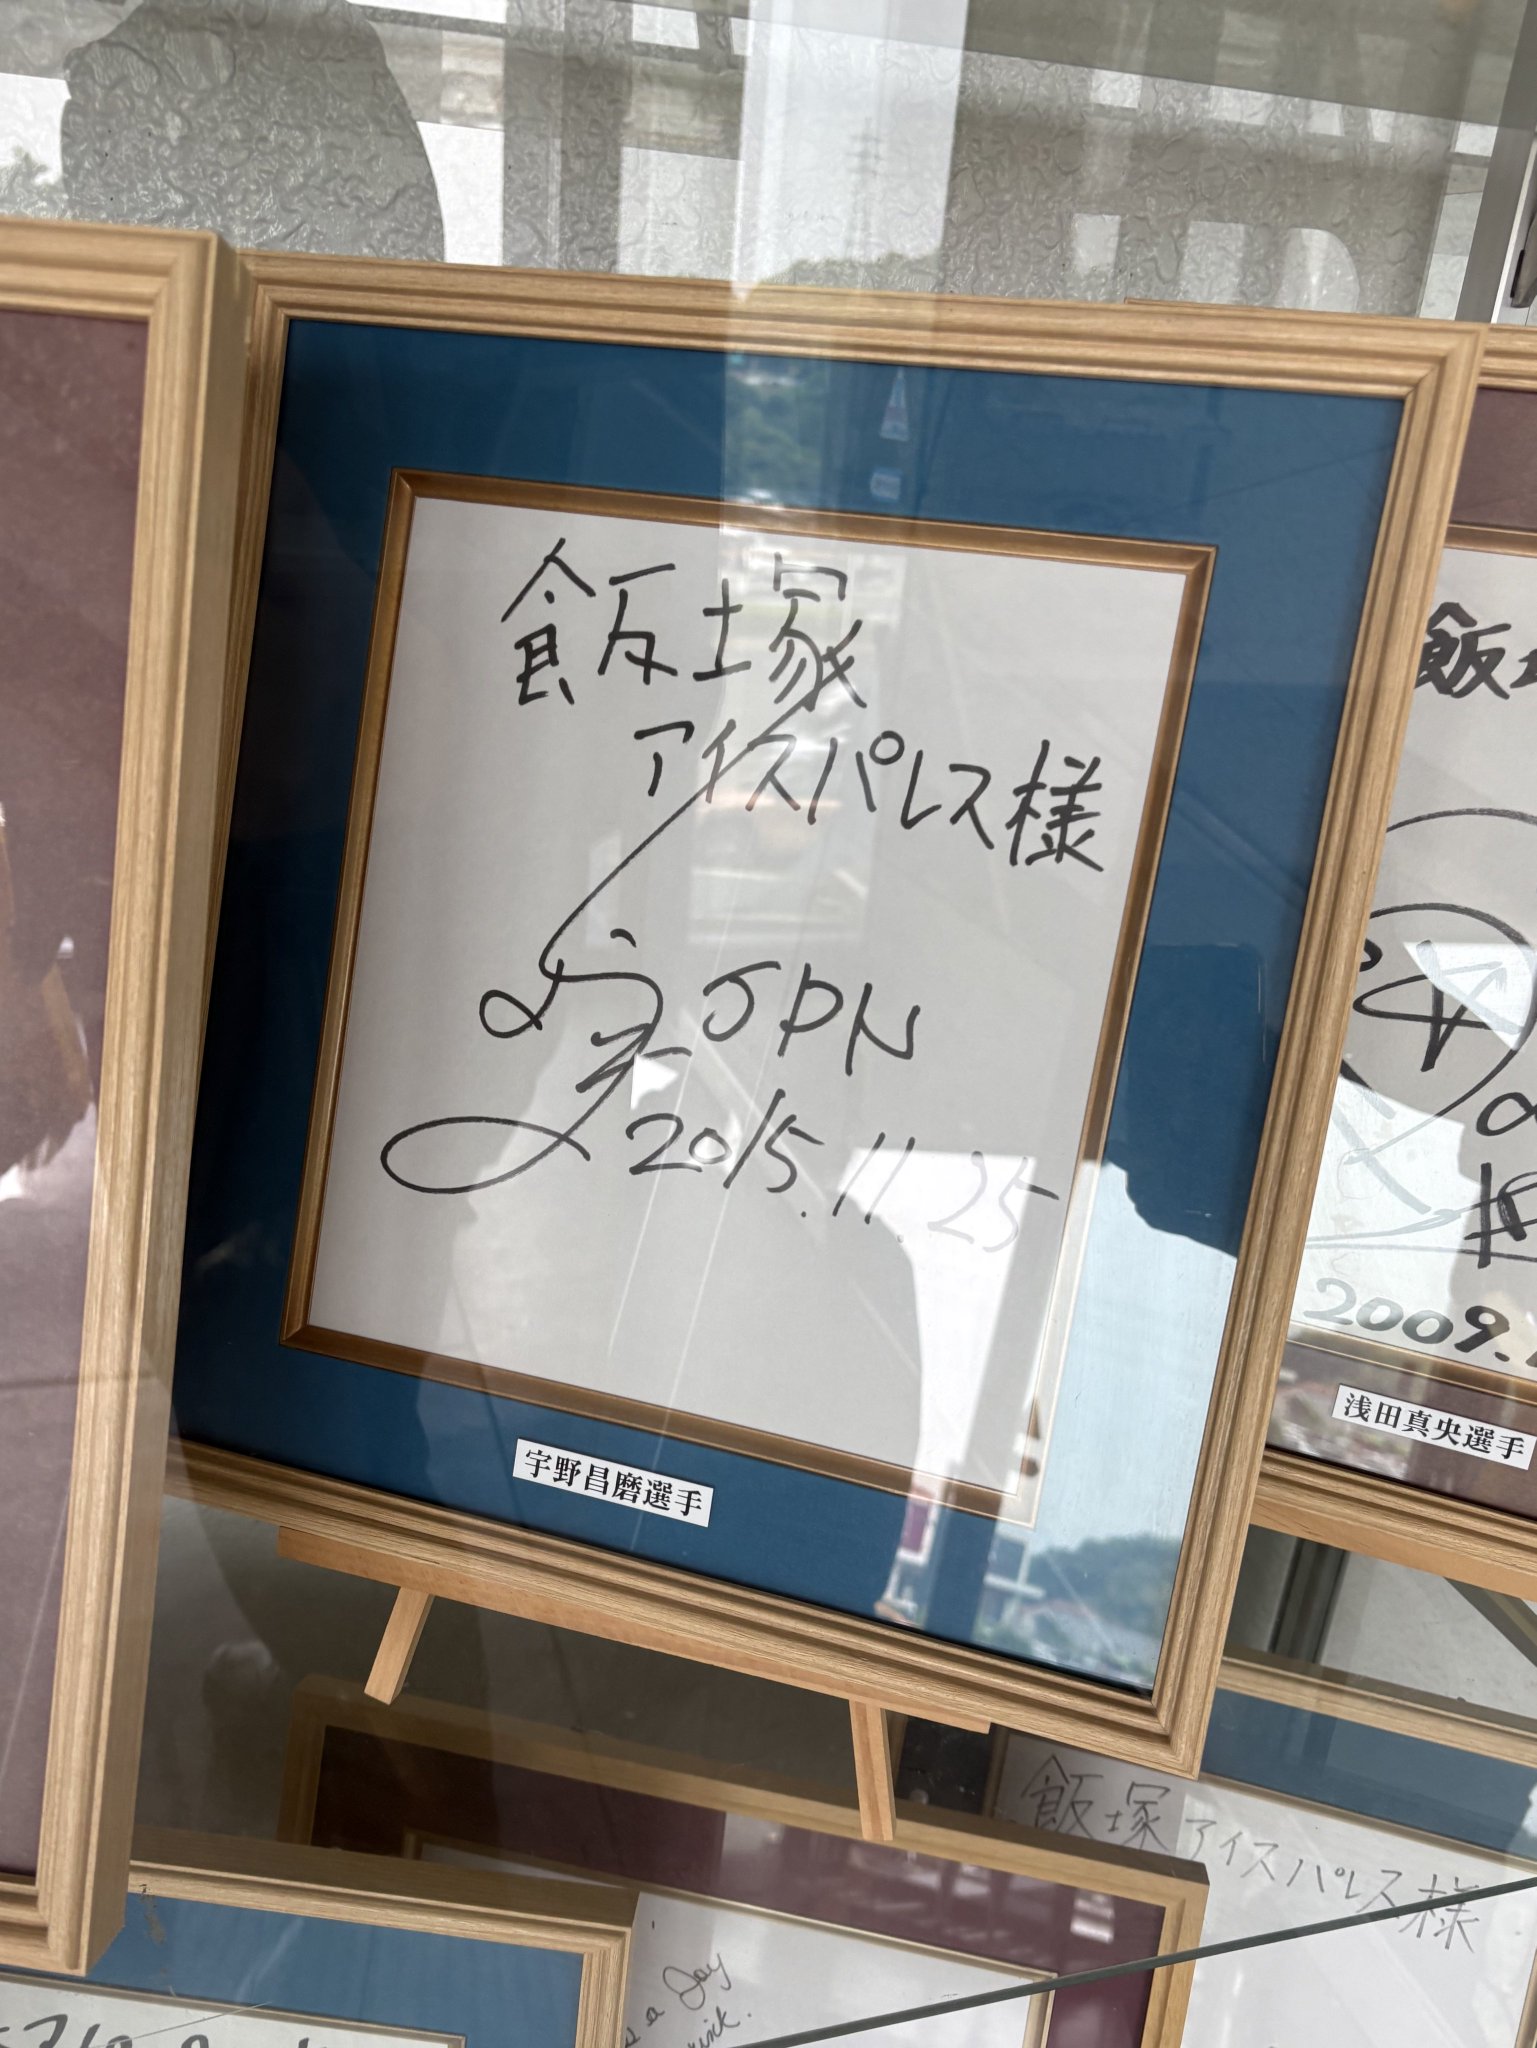 飯塚
アイスパレス様
JPN
2015.11.25
宇野昌磨選手
飯
2009.
浅田真央選手
飯塚アイスパレス様
a Joy